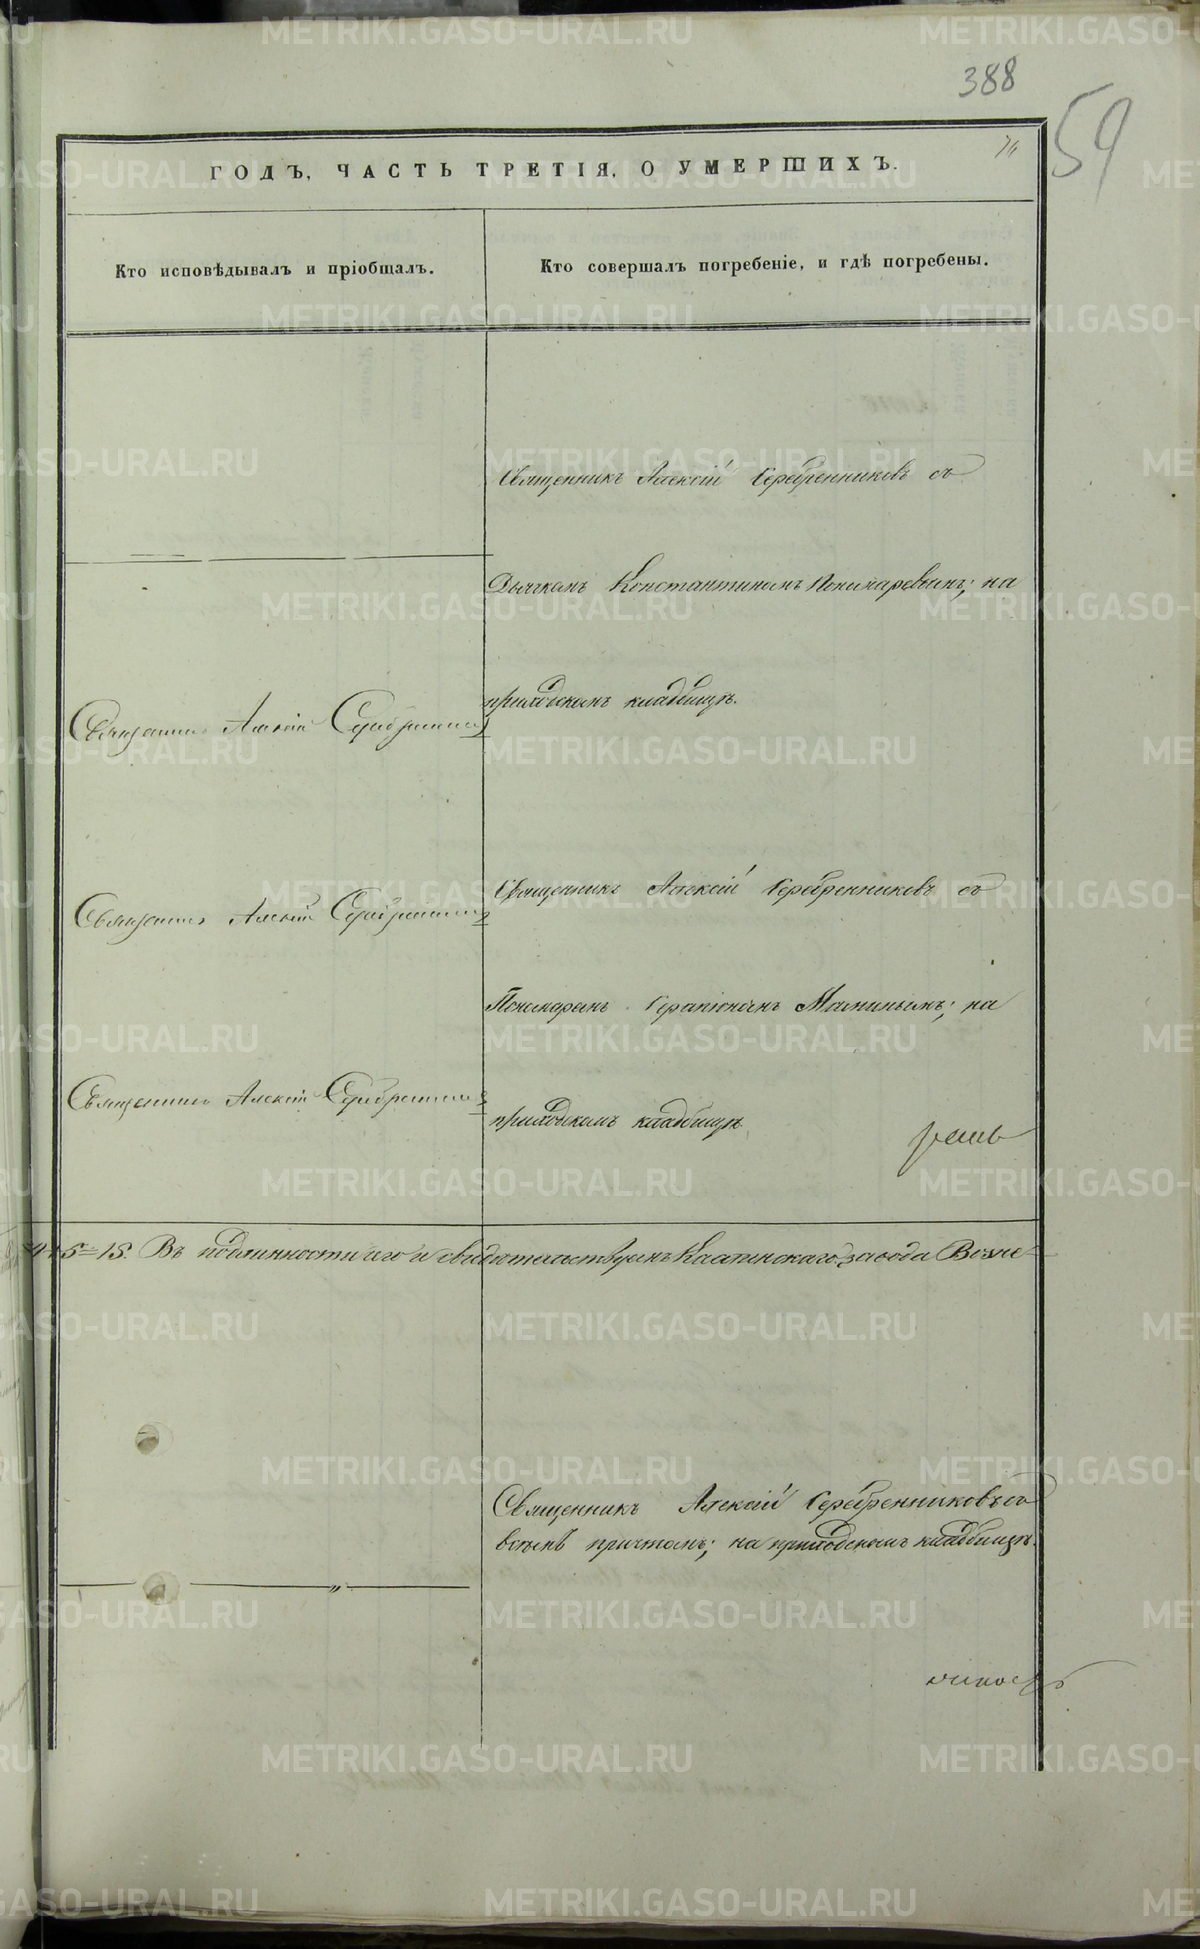 388
59
ГОДЪ, ЧАСТЬ ТРЕТІЯ, О УМЕРШИХЪ.
Кто исповѣдывалъ и пріобщалъ.
Кто совершалъ погребеніе, и гдѣ погребены.
Священникъ Алексій Серебренниковъ съ
Дьячкомъ Константиномъ Пономаревымъ; на
приходскомъ кладбищѣ.
Священникъ Алексій Серебренниковъ
Священникъ Алексій Серебренниковъ съ
Священникъ Алексій Серебренниковъ
Пономаремъ Серапіономъ Маминымъ; на
Священникъ Алексій Серебренниковъ
приходскомъ кладбищѣ
5=15. Въ подлинности сего и свидѣтельствуемъ Каслинскаго завода Возне-
Священникъ Алексій Серебренниковъ со
всѣмъ причтомъ; на приходскомъ кладбищѣ.
METRIKI.GASO-URAL.RU